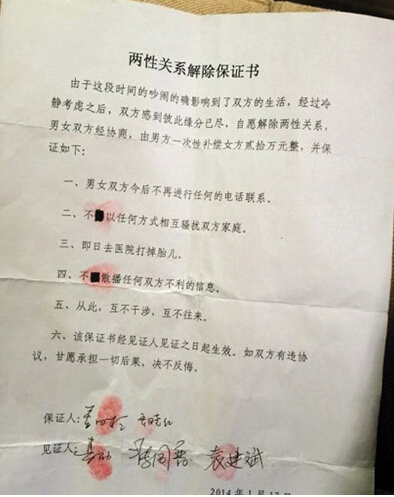 两性关系解除保证书
由于这段时间的吵闹的确影响到了双方的生活，经过冷
静考虑之后，双方感到彼此缘分已尽，自愿解除两性关系，
男女双方经协商，由男方一次性补偿女方贰拾万元整，并保
证如下：
一、男女双方今后不再进行任何的电话联系。
二、不以任何方式相互骚扰双方家庭。
三、即日去医院打掉胎儿。
四、不散播任何双方不利的信息。
五、从此，互不干涉、互不往来。
六、该保证书经见证人见证之日起生效。如双方有违协
议，甘愿承担一切后果，决不反悔。
保证人：
见证人： 袁建斌
2014 年 1 月 17 日